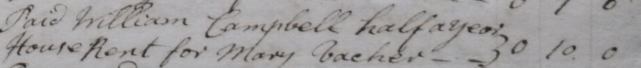 Paid William Campbell half a year
House Rent for Mary Vacher - - } 0 10 0